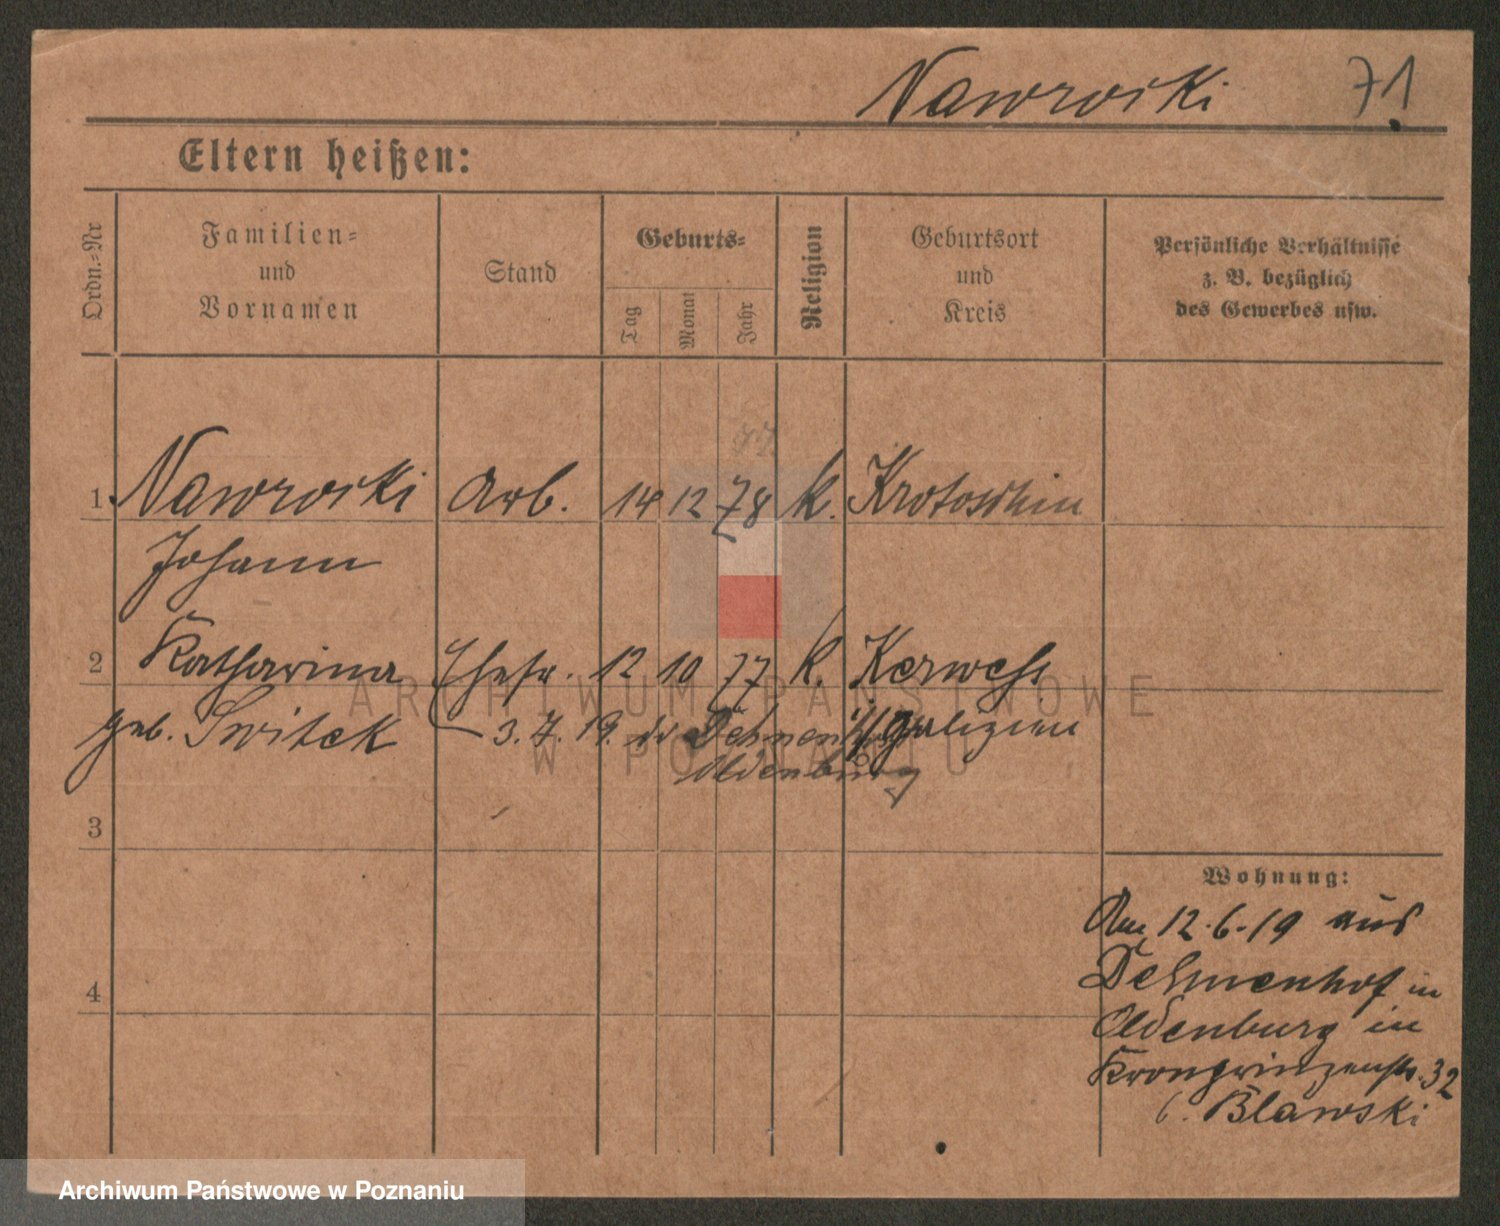 Nawrocki 71
Eltern heißen:
Ordn.-Nr
Familien-
und
Vornamen
Stand
Geburts-
Tag
Monat
Jahr
Religion
Geburtsort
und
Kreis
Persönliche Verhältnisse
z. B. bezüglich
des Gewerbes usw.
77.
1 Nawrocki Arb. 14 12 78 k. Krotoschin
Johann
2 Katharina Ehefr. 12 10 77 k.
geb. Switek 3. 7. 19. Galizien
Oldenburg
3
4
Wohnung:
Am 12.6.19 aus
Delmenhof in
Oldenburg in
Kronprinzenstr. 32
b. Blawski
ARCHIWUM PAŃSTWOWE
W POZNANIU
Archiwum Państwowe w Poznaniu